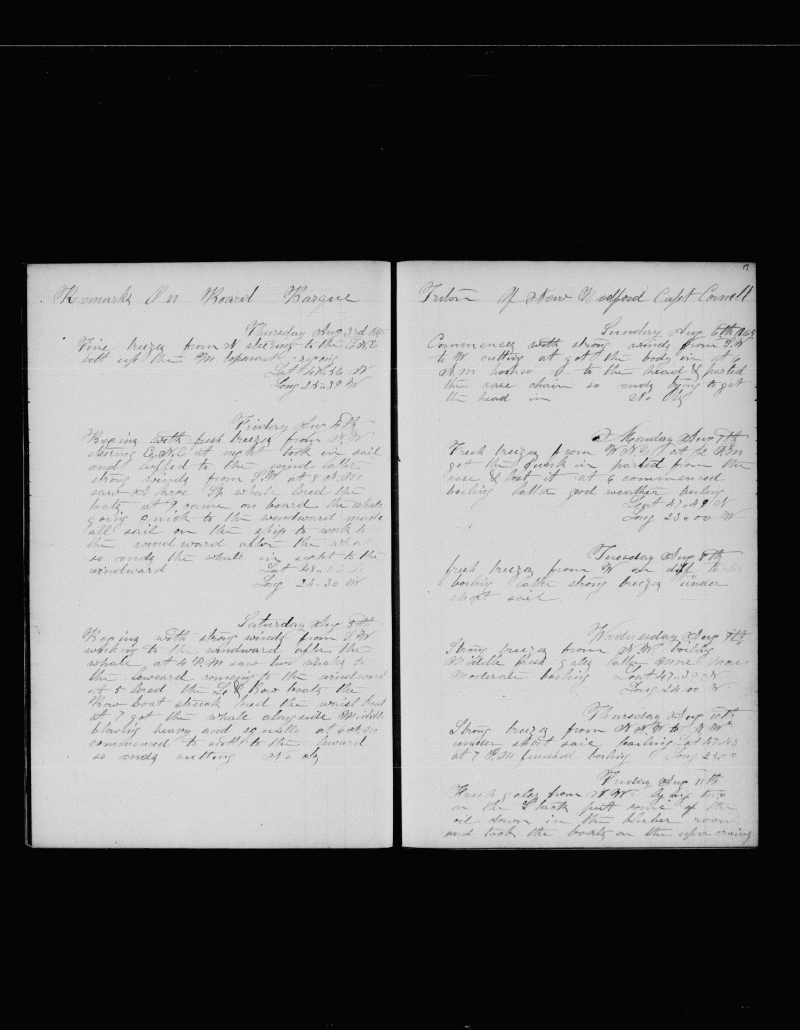 Remarks On Board Barque
Thursday Aug 3rd 1865
Fine breezes from N steering to the E N E
bent up the M topmast
Lat 47-56 N
Long 25-39 W
Friday Aug 4th
Begins with fresh breezes from N.W
stering E.N.E at night took in sail
and luffed to the wind latter
strong winds from S.W at 8 A.M
saw Sp whale lowed the
boats at 9 came on board the whale
going quick to the windward made
all sail on the ship to work to
the windward after the whale
so ends the whale in sight to the
windward Lat 48
Long 24-30 W
Saturday Aug 5th
Begins with strong winds from S W
working to the windward after the
whale at 4 P.M saw two whales to
the leeward coming to the windward
at 5 lowed the L & Bow boats the
Bow boat struck lowed the waist boat
at 7 got the whale alongside Middle
blowing heavy and squalls at A.M
commenced to the leward
so ends cutting No obs
7
Triton of New Bedford Capt Cornell
Sunday Aug 6th 1865
Commences with strong winds from S.W
to W cutting at 9 got the body in at 6
A.M hooked to the head & parted
the case chain so ends trying to get
the head in No Obs
Monday Aug 7th
Fresh breezes from W N W at P.M
got the Junk in parted from the
case & lost it at 6 commenced
boiling latter good weather boiling
Lat 47-49 N
Long 23-00 W
Tuesday Aug 8th
fresh breezes from W
boiling latter strong breezes under
short sail
Wednesday Aug 9th
Strong breezes from N.W boiling
Middle fresh gales latter more
moderate boiling Lat 47-30 N
Long 24-00 W
Thursday Aug 10th
Strong breezes from N N W to N W
under short sail boiling Lat 47-43
at 7 P.M finished boiling Long 25-0
Friday Aug 11th
Fresh gales from N W lying too
on the S tack put some of the
oil down in the bluber room
and took the boats on the uper craing